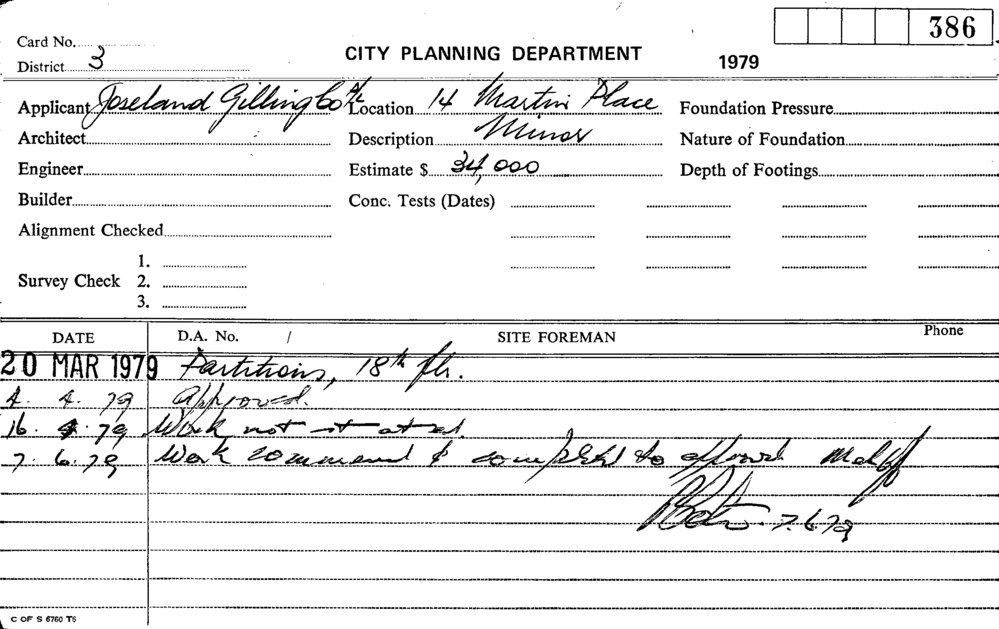 386
Card No.
CITY PLANNING DEPARTMENT 1979
District 3
Applicant Joseland Gilling Location 14 Martin Place Foundation Pressure
Architect Description Minor Nature of Foundation
Engineer Estimate $ 34,000 Depth of Footings
Builder Conc. Tests (Dates)
Alignment Checked
1.
Survey Check 2.
3.
DATE D.A. No. / SITE FOREMAN Phone
20 MAR 1979 Partitions, 18th flr.
4. 4. 79 Approved.
16. 79 Work not
7. 6. 79 Work & to
7.6.79
C OF S 6760 T5